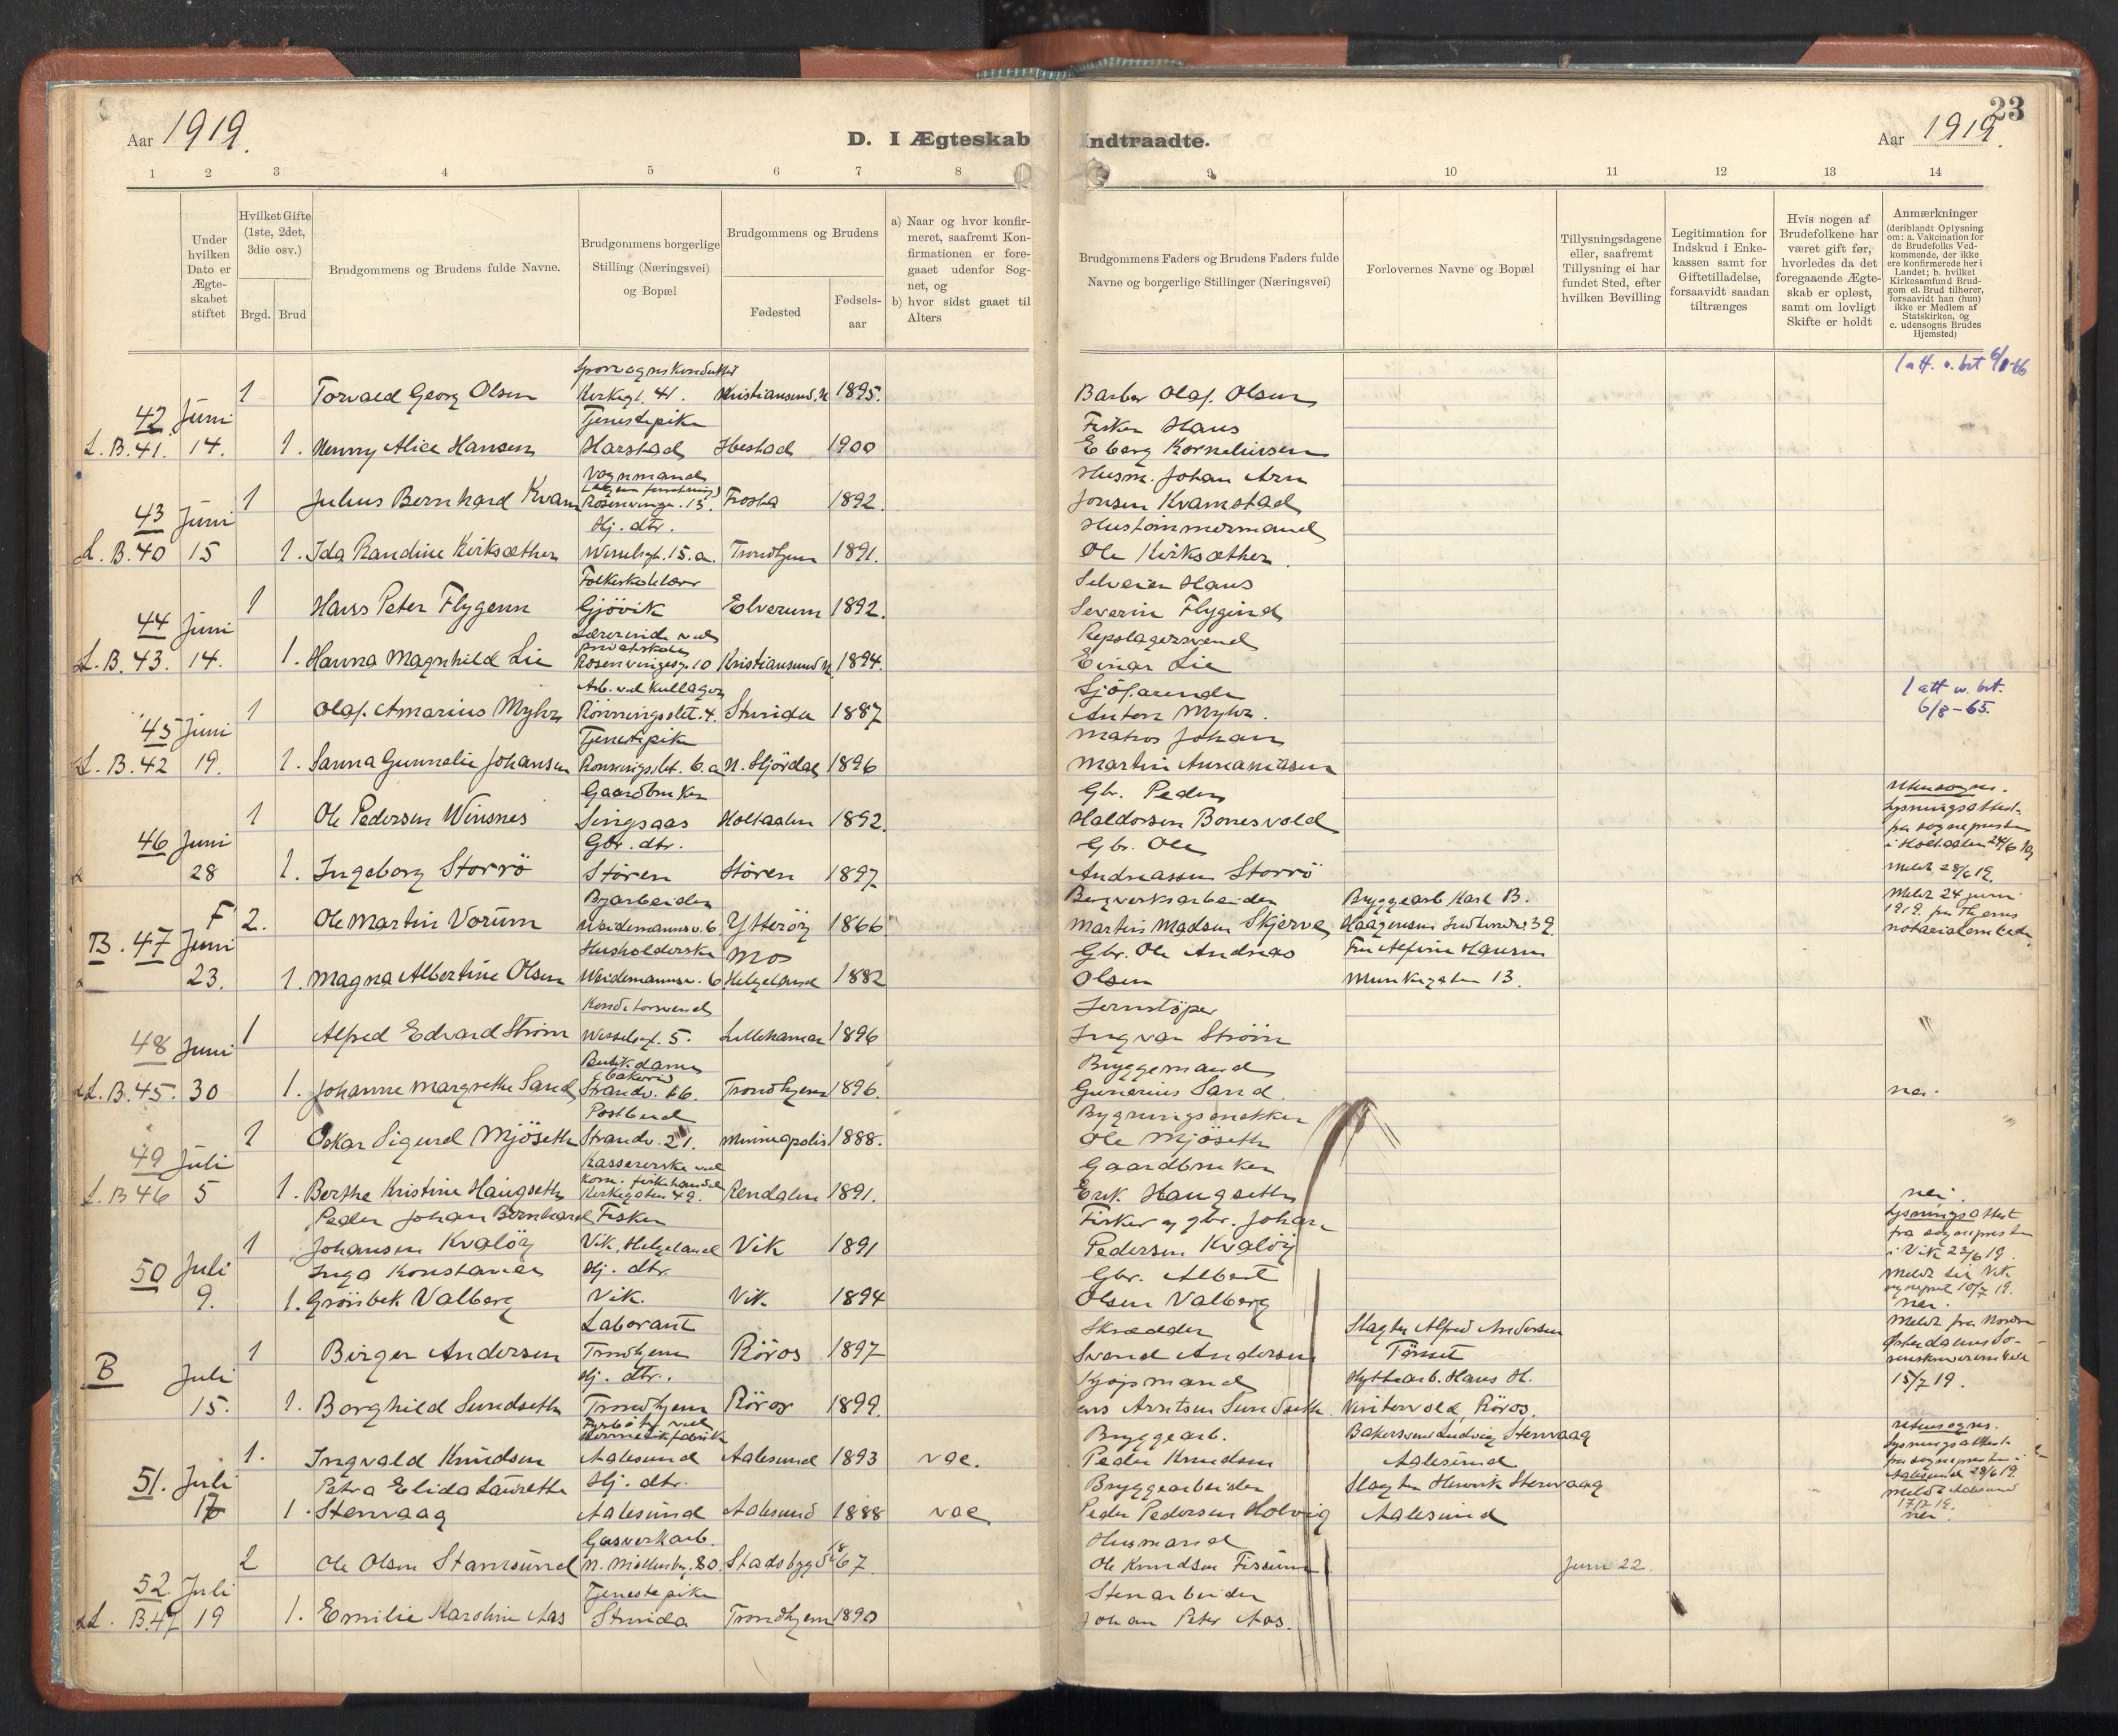 23
Aar 1919.
D. I Ægteskab Indtraadte.
Aar 1919.
1 2 3 4 5 6 7 8 9 10 11 12 13 14
Under hvilken Dato er Ægteskabet stiftet
Hvilket Gifte (1ste, 2det, 3die osv.)
Brgd. Brud
Brudgommens og Brudens fulde Navne.
Brudgommens borgerlige Stilling (Næringsvei) og Bopæl
Brudgommens og Brudens
Fødested
Fødsels-aar
a) Naar og hvor konfir-
meret, saafremt Kon-
firmationen er fore-
gaaet udenfor Sog-
net, og
b) hvor sidst gaaet til
Alters
Brudgommens Faders og Brudens Faders fulde
Navne og borgerlige Stillinger (Næringsvei)
Forlovernes Navne og Bopæl
Tillysningsdagene
eller, saafremt
Tillysning ei har
fundet Sted, efter
hvilken Bevilling
Legitimation for
Indskud i Enke-
kassen samt for
Giftetilladelse,
forsaavidt saadan
tiltrænges
Hvis nogen af
Brudefolkene har
været gift før,
hvorledes da det
foregaaende Ægte-
skab er opløst,
samt om lovligt
Skifte er holdt
Anmærkninger
(deriblandt Oplysning
om: a. Vakcination for
de Brudefolks Ved-
kommende, der ikke
ere konfirmerede her i
Landet; b. hvilket
Kirkesamfund Brud-
gom el. Brud tilhører,
forsaavidt han (hun)
ikke er Medlem af
Statskirken, og
c. udensogns Brudes
Hjemsted)
Sporvognskonduktør
1 Torvald Georg Olsen Kirkegt. 41. Kristiansund. N 1895. Barber Olaf Olsen
42 Juni Tjenestepike Fisker Hans
L. B. 41. 14. 1. Henny Alice Hansen Harstad Ibestad 1900 Eberg Korneliussen
Vognmand Husm. Johan Arn
1 Julius Bernhard Kvam Rosenvinge. 15. Frosta 1892. Jonsen Kvamstad
43 Juni Hj. dtr. Hustømmermand
L. B. 40 15 1. Ida Randine Kirksæther Wesselsgt. 15. a. Trondhjem 1891. Ole Kirksæther
Folkeskolelærer Selveier Hans
1 Hans Peter Flygenn Gjövik Elverum 1892. Severin Flygind
44 Juni Lærerinde ved privatskole Repslagersvend
L. B. 43. 14. 1. Hanna Magnhild Lie Rosenvingesg. 10 Kristiansund N. 1894. Einar Lie
Arb. ved kullager Sjöfarende 1 att u. brt.
1 Olaf Amarius Myhr Rönningsslet. 4. Strinda 1887 Anton Myhr. 6/8 - 65.
45 Juni Tjenestepike Matros Johan
L. B. 42 19. 1. Sanna Gunnelie Johansen Ronningslet. 6. a N. Stjördal 1896 Martin Annaniasen
Gaardbruker Gbr. Peder utensogns.
1 Ole Pedersen Winsnes Singsaas Holtaalen 1892. Haldorsen Bonesvold Lysningsattest
46 Juni Gbr. dtr. Gbr. Ole fra sognepresten i Holtaalen 24/6 19
28 1. Ingeborg Storrö Stören Stören 1897 Andreassen Storrö Meldt 28/6 19.
Bryarbeider Bergverksarbeider Bryggearb. Karl B. Meldt 24 juni
F 2. Ole Martin Vorum Weidemannsv. 6 Ytteröy 1866 Martin Madsen Skjerve 1919
B. 47 Juni Husholderske Mo Gbr. Ole Andreas Fru Alfine Hansen notarialembede
23. 1. Magna Albertine Olsen Weidemannsv. 6 Helgeland 1882 Olsen Munkegaten 13.
Konditorsvend Jernstöper
1 Alfred Edvard Ström Wesselsgt. 5. Lillehamar 1896 Ingvar Ström
48 Juni Butikdame (bakeri) Bryggemand
L. B. 45. 30 1. Johanne Margrethe Sand Strandv. 66. Trondhjem 1896. Gunerius Sand. nei.
Postbud Bygningssnekker
1 Oskar Sigurd Mjöseth Strandv. 21. Minneapolis 1888. Ole Mjöseth
49 Juli Kassererske ved Gaardbruker
L. B 46 5 1. Berthe Kristine Haugseth Kirkegaten 49. Rendalen 1891. Erik Haugseth nei.
Peder Johan Bernhard Fisker Fisker og gbr. Johan Lysningsattest
1 Johansen Kvalöy Vik, Helgeland Vik 1891 Pedersen Kvalöy fra sognepresten i Vik 22/6 19.
50 Juli Inga Konstance Hj. dtr. Gbr. Albert Meldt til Vik
9. 1. Grönbek Valberg Vik. Vik 1894 Olsen Valberg 10/7 19. nei.
Laborant Skrædder Slagter Alfred Andersen Meldt fra Nordre
1 Birger Andersen Trondhjem Röros 1897 Svend Andersen Tönset Østerdalens So-
B Juli Hj. dtr. Kjöpmand Hyttearb. Hans H. renskriverembede
15. 1. Borghild Sundseth Trondhjem Röros 1899. Arntsen Sundseth. Vintervold, Röros. 15/7 19.
Fyrböter ved Hermetikfabrik Bryggearb. Bakersvend Ludvig Stenvaag utensogns.
1. Ingvald Knudsen Aalesund Aalesund 1893 vac. Peder Knudsen Aalesund Lysningsattest
51. Juli Petra Elida Laurette Hj. dtr. Bryggearbeider Slagter Henrik Stenvaag fra sognepresten i Aalesund 29/6 19
17 1. Stenvaag Aalesund Aalesund 1888 vac. Peder Pedersen Holvig Aalesund Meldt Aalesund 17/7 19. nei.
Gasverkarb. Husmand
2 Ole Olsen Stamsund N. Möllenbg. 80. Stadsbygd 1867. Ole Knudsen Fissum Juni 22.
52. Juli Tjenestepike Stenarbeider
L. B. 47 19 1. Emilie Karoline Aas Strinda Trondhjem 1890 Johan Peter Aas.